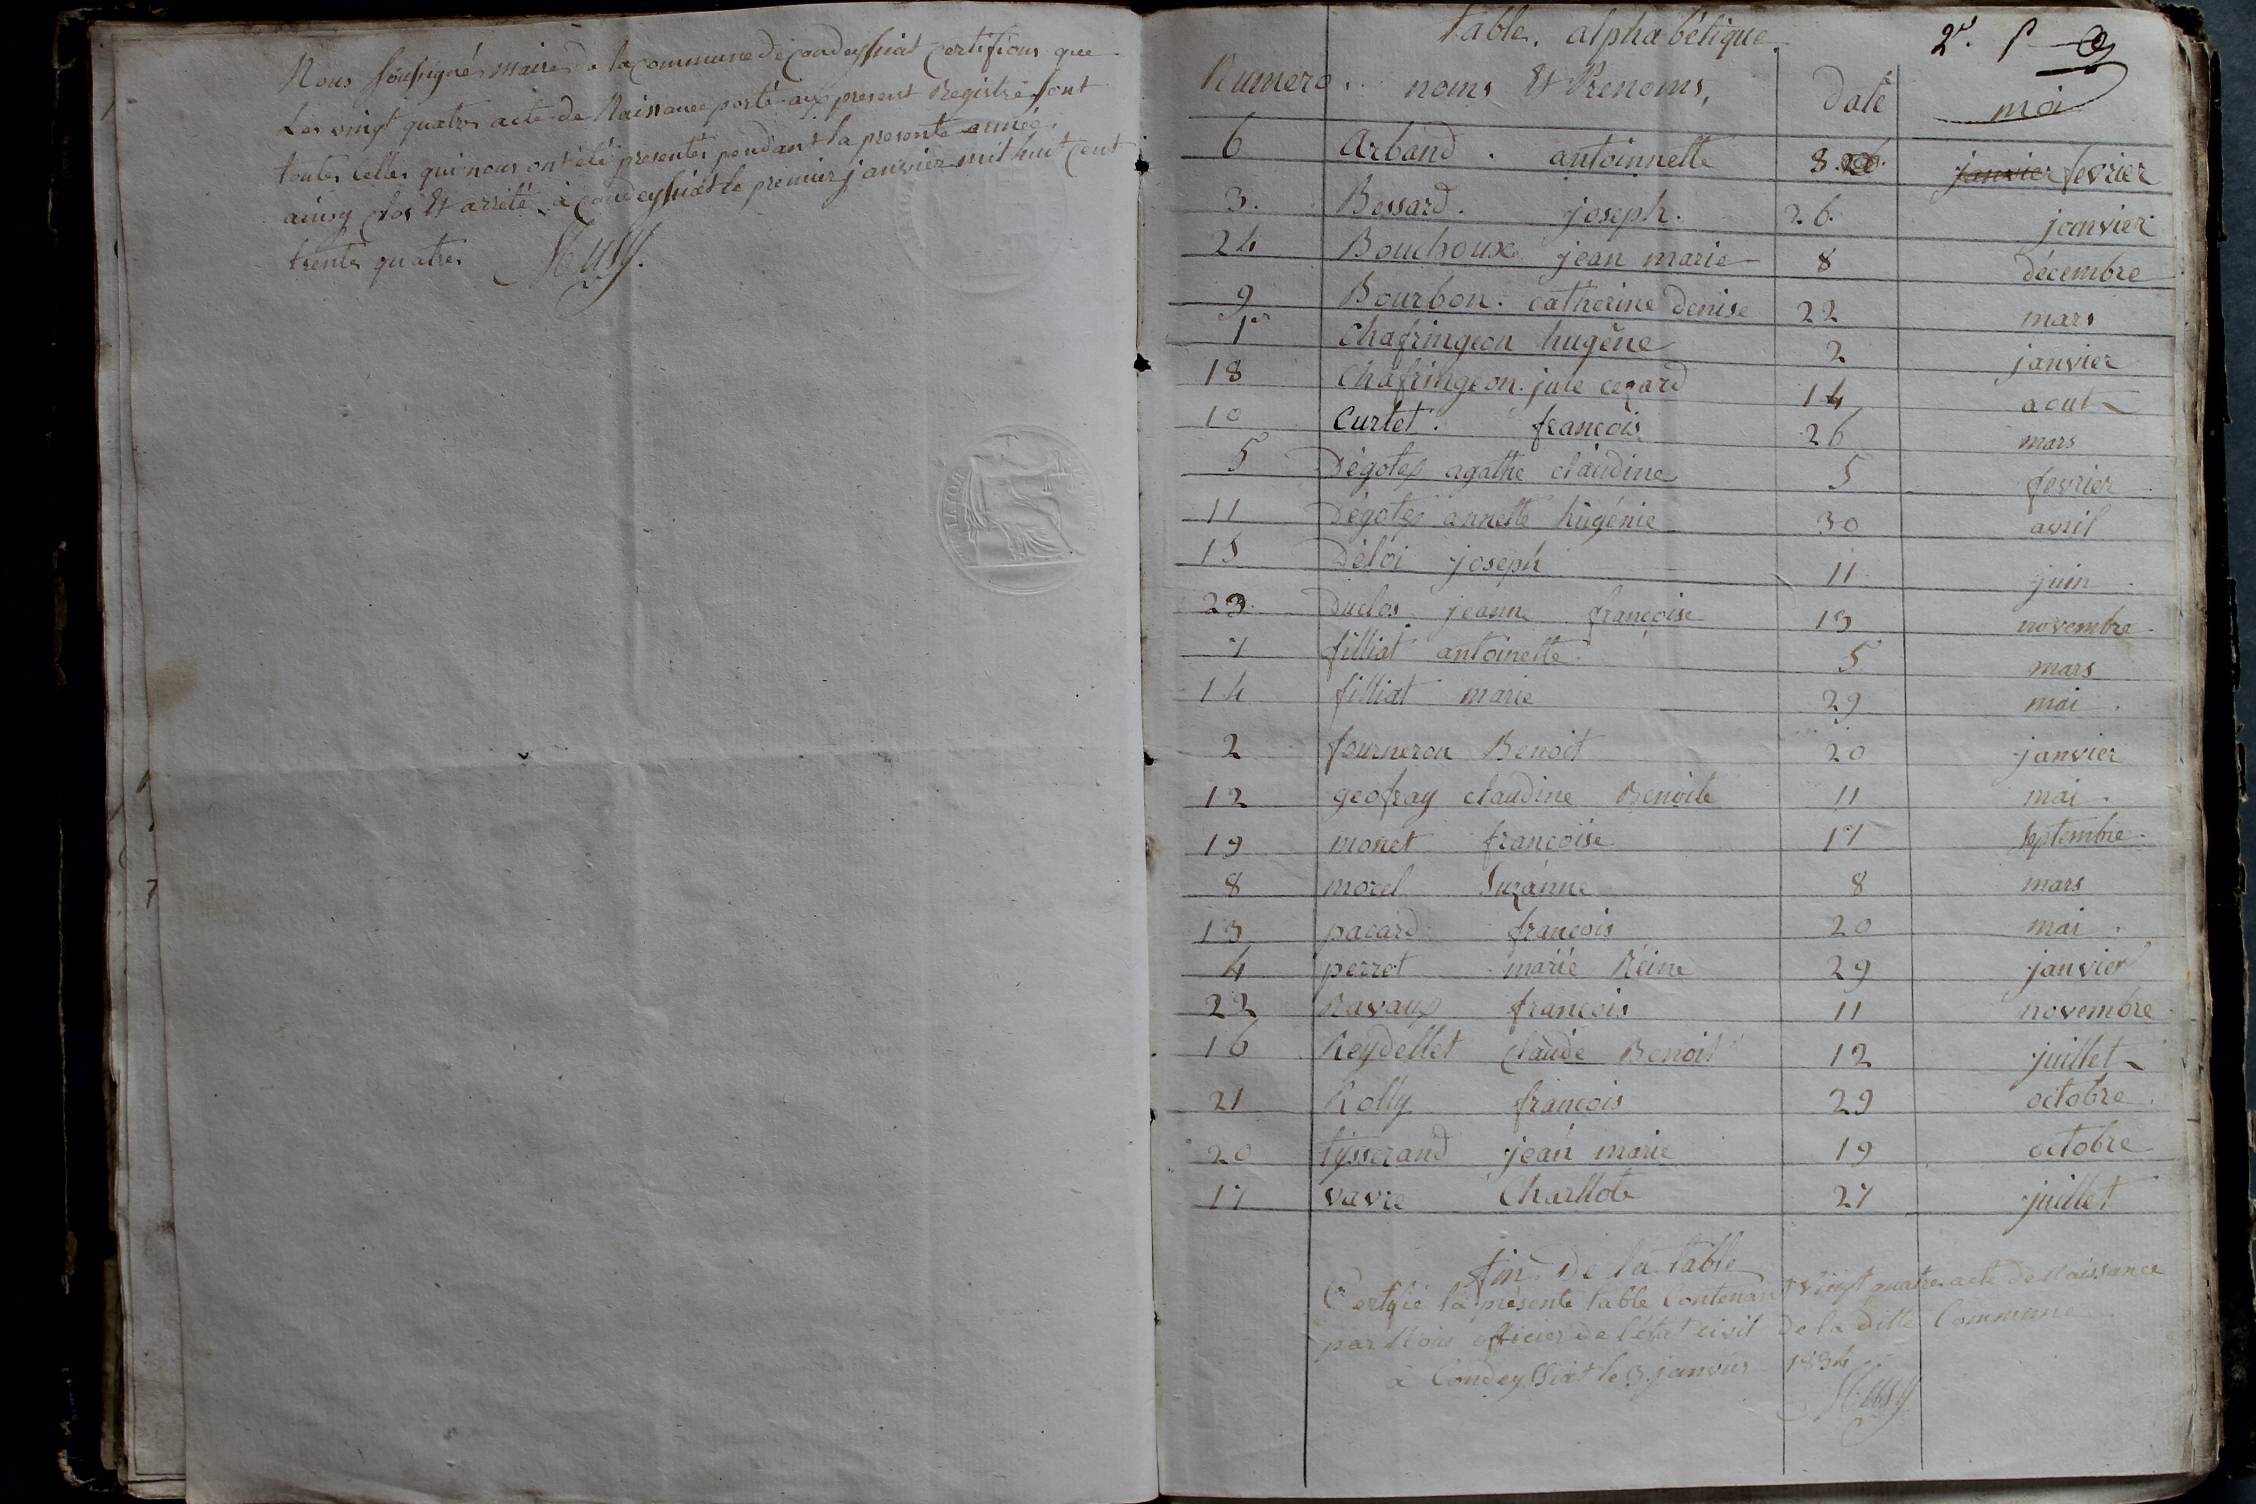 Nous soussigné maire de la commune de condeyssiat certifions que
Les vingt quatre acte de Naissance porté aux present Registre sont
toutes celles qui nous ont été presentés pendant la presente année
ainsy clos Et arrêté à condeyssiat le premier janvier mil huit cent
trente quatre
Table. alphabétique.
2e.
Numero. noms Et Prenoms, Date moi
6 Arband. antoinnette 8 janvier fevrier
3. Bessard. joseph. 26. janvier
24 Bouchoux jean marie 8 décembre
9 Bourbon. catherine Denise 22 mars
1er Chafringeon hugène 2 janvier
18 Chafringeon. jule cezard 14 aout
10 Curtet. francois 26 mars
5 Dégotex agathe claudine 5 fevrier
11 Dégotex annette hugénie 30 avril
15 Déloi joseph 11 juin
23 Duclos jeanne francoise 13 novembre
7 filliat antoinette. 5 mars
14 filliat marie 29 mai.
2 fourneron Benoit 20 janvier
12 geofray claudine Benoite 11 mai.
19 monet francoise 17 septembre
8 morel Suzanne 8 mars
13 pacard francois 20 mai.
4 perret marie Réine 29 janvier
22 Ravaux francois 11 novembre
16 Reydellet claude Benoit 12 juillet
21 Rolly francois 29 octobre
20 tysserand jean marie 19 octobre
17 vavre Charllote 27 juillet
fin De la table
Certifié la présente table Contenant vingt quatre acte de Naissance
par Nous officier de l'état civil de la ditte Commune
à Condeyssiat le 3 janvier 1834